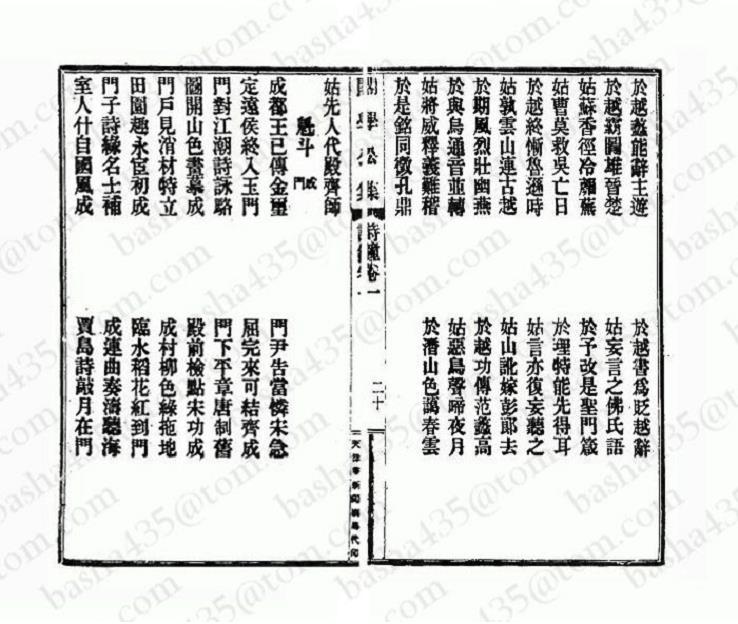 於越蠡能辭主遊
於越霸圖雄晉楚
姑蘇香徑冷蘼蕪
姑曹莫救吳亡日
於越終慚魯遜時
姑孰雲山連古越
於期風烈壯幽燕
於與烏通音並轉
姑將威釋義難稽
於是銘同徵孔鼎
於越書爲貶越辭
姑妄言之佛氏語
於予改是聖門箴
於理特能先得耳
姑言亦復妄聽之
姑山訛嫁彭郎去
於越功傳范蠡高
姑惡鳥聲啼夜月
於潛山色藹春雲
學 集 詩鐘卷一 二十
姑先人代殿齊師
魁斗 成門
成都王已傳金璽
定遠侯終入玉門
門對江潮詩詠駱
圖開山色畫摹成
門戶見消材特立
田園趣永宦初成
門子詩緣名士補
室人什自國風成
門尹告當憐宋急
屈完來可結齊成
門下平章唐制舊
殿前檢點宋功成
成村柳色綠拖地
臨水稻花紅到門
成連曲奏濤聽海
賈島詩敲月在門
basha435@tom.com